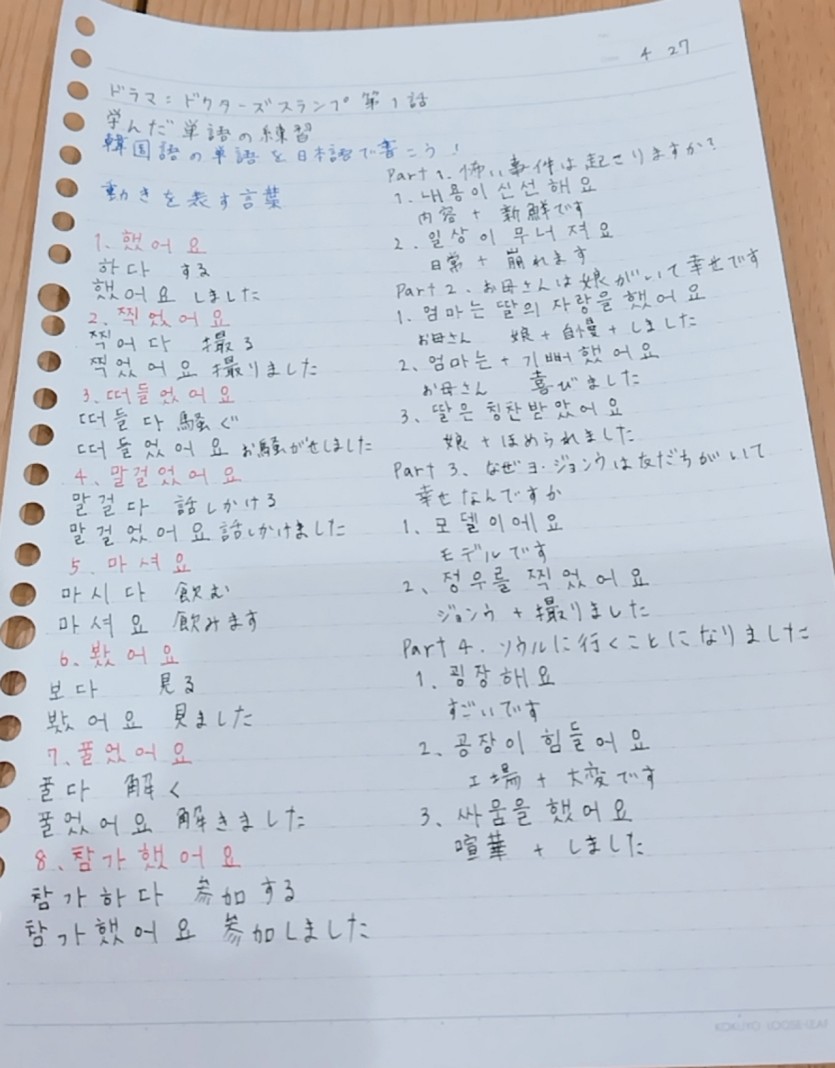 4 27
ドラマ：ドクターズスランプ第1話
学んだ単語の練習
韓国語の単語を日本語で書こう！
動きを表す言葉
1. 했어요
하다 する
했어요 しました
2. 찍었어요
찍어다 撮る
찍었어요 撮りました
3. 떠들었어요
떠들다 騒ぐ
떠들었어요 お騒がせしました
4. 말걸었어요
말걸다 話しかける
말걸었어요 話しかけました
5. 마셔요
마시다 飲む
마셔요 飲みます
6. 봤어요
보다 見る
봤어요 見ました
7. 풀었어요
풀다 解く
풀었어요 解きました
8. 참가했어요
참가하다 参加する
참가했어요 参加しました
Part 1. 怖い事件は起こりますか？
1. 내용이 신선해요
内容 + 新鮮です
2. 일상이 무너져요
日常 + 崩れます
Part 2. お母さんは娘がいて幸せです
1. 엄마는 딸의 자랑을 했어요
お母さん 娘 + 自慢 + しました
2. 엄마는 + 기뻐했어요
お母さん 喜びました
3. 딸은 칭찬받았어요
娘 + ほめられました
Part 3. なぜヨ・ジョンウは友だちがいて
幸せなんですか
1. 모델이에요
モデルです
2. 정우를 찍었어요
ジョンウ + 撮りました
Part 4. ソウルに行くことになりました
1. 굉장해요
すごいです
2. 공장이 힘들어요
工場 + 大変です
3. 싸움을 했어요
喧華 + しました
KOKUYO LOOSE-LEAF